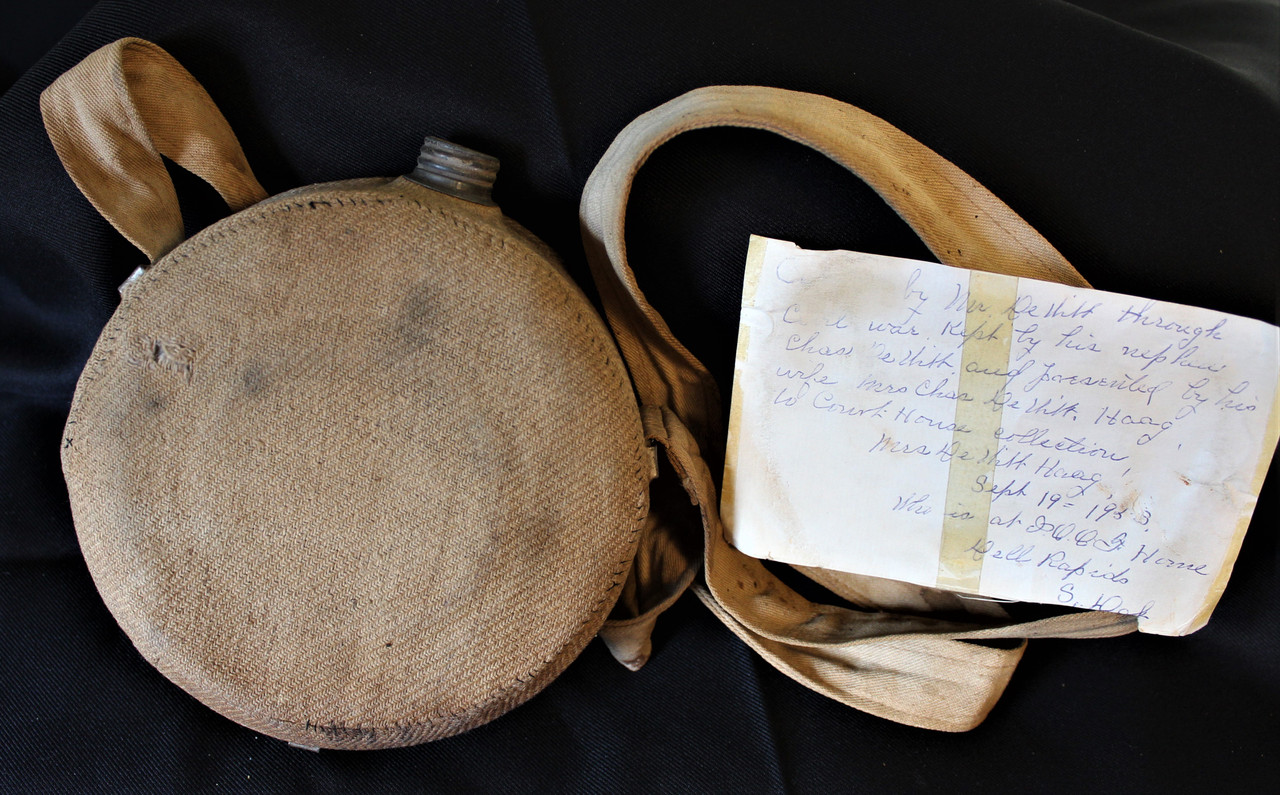 by Mr DeWitt through
war kept by his nephew
Chas DeWitt and presented by his
wife Mrs Chas DeWitt. Haag,
to Court House collection,
Mrs DeWitt Haag,
Sept 19=
Who is at I.O.O.F. Home
Dell Rapids
S. Dak